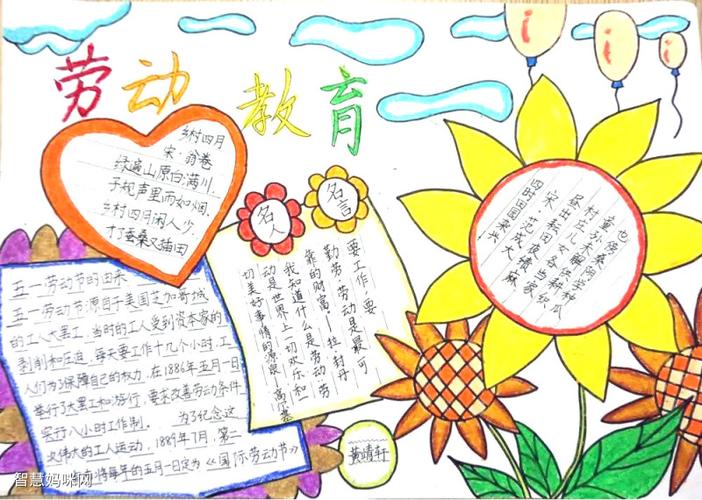 劳动教育
乡村四月
宋·翁卷
绿遍山原白满川,
子规声里雨如烟.
乡村四月闲人少,
蚕桑又插田
名人
名言
要工作,要
勤劳:劳动是最可
靠的财富—拉·封丹
我知道什么是劳动:劳
动是世界上一切欢乐和
切美好事情的源泉—高尔基
四时田园杂 六
宋 范成大
昼出耘田夜绩麻
村庄儿女各当家
童孙未解供耕织
也傍桑阴学种瓜
五一劳动节的由来
五一劳动节源自于美国芝加哥城
的工人大罢工,当时的工人受到资本家的
剥削和压迫,每天要工作十几个小时.工
人们为了保障自己的权力,在1886年五月一日
举行了大罢工和游行,要求改善劳动条件
实行八小时工作制. 为了纪念这
次伟大的工人运动,1889年7月,第二
将每年的五月一日定为《国际劳动节》
黄靖轩
智慧妈咪网